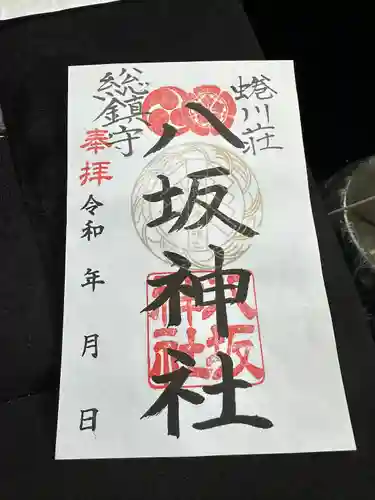 蜷川荘
総鎮守
八坂神社
八坂神社
奉拝
令和 年 月 日